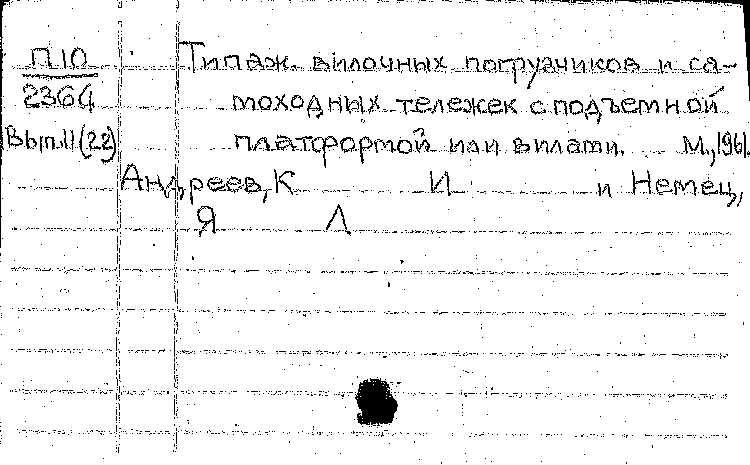 П10 Типаж вилочных погрузчиков и са-
2364 моходных тележек с подъемной
Вып.11(22) платформой или вилами. М., 1961.
Андреев, К И и Немец,
Я Л